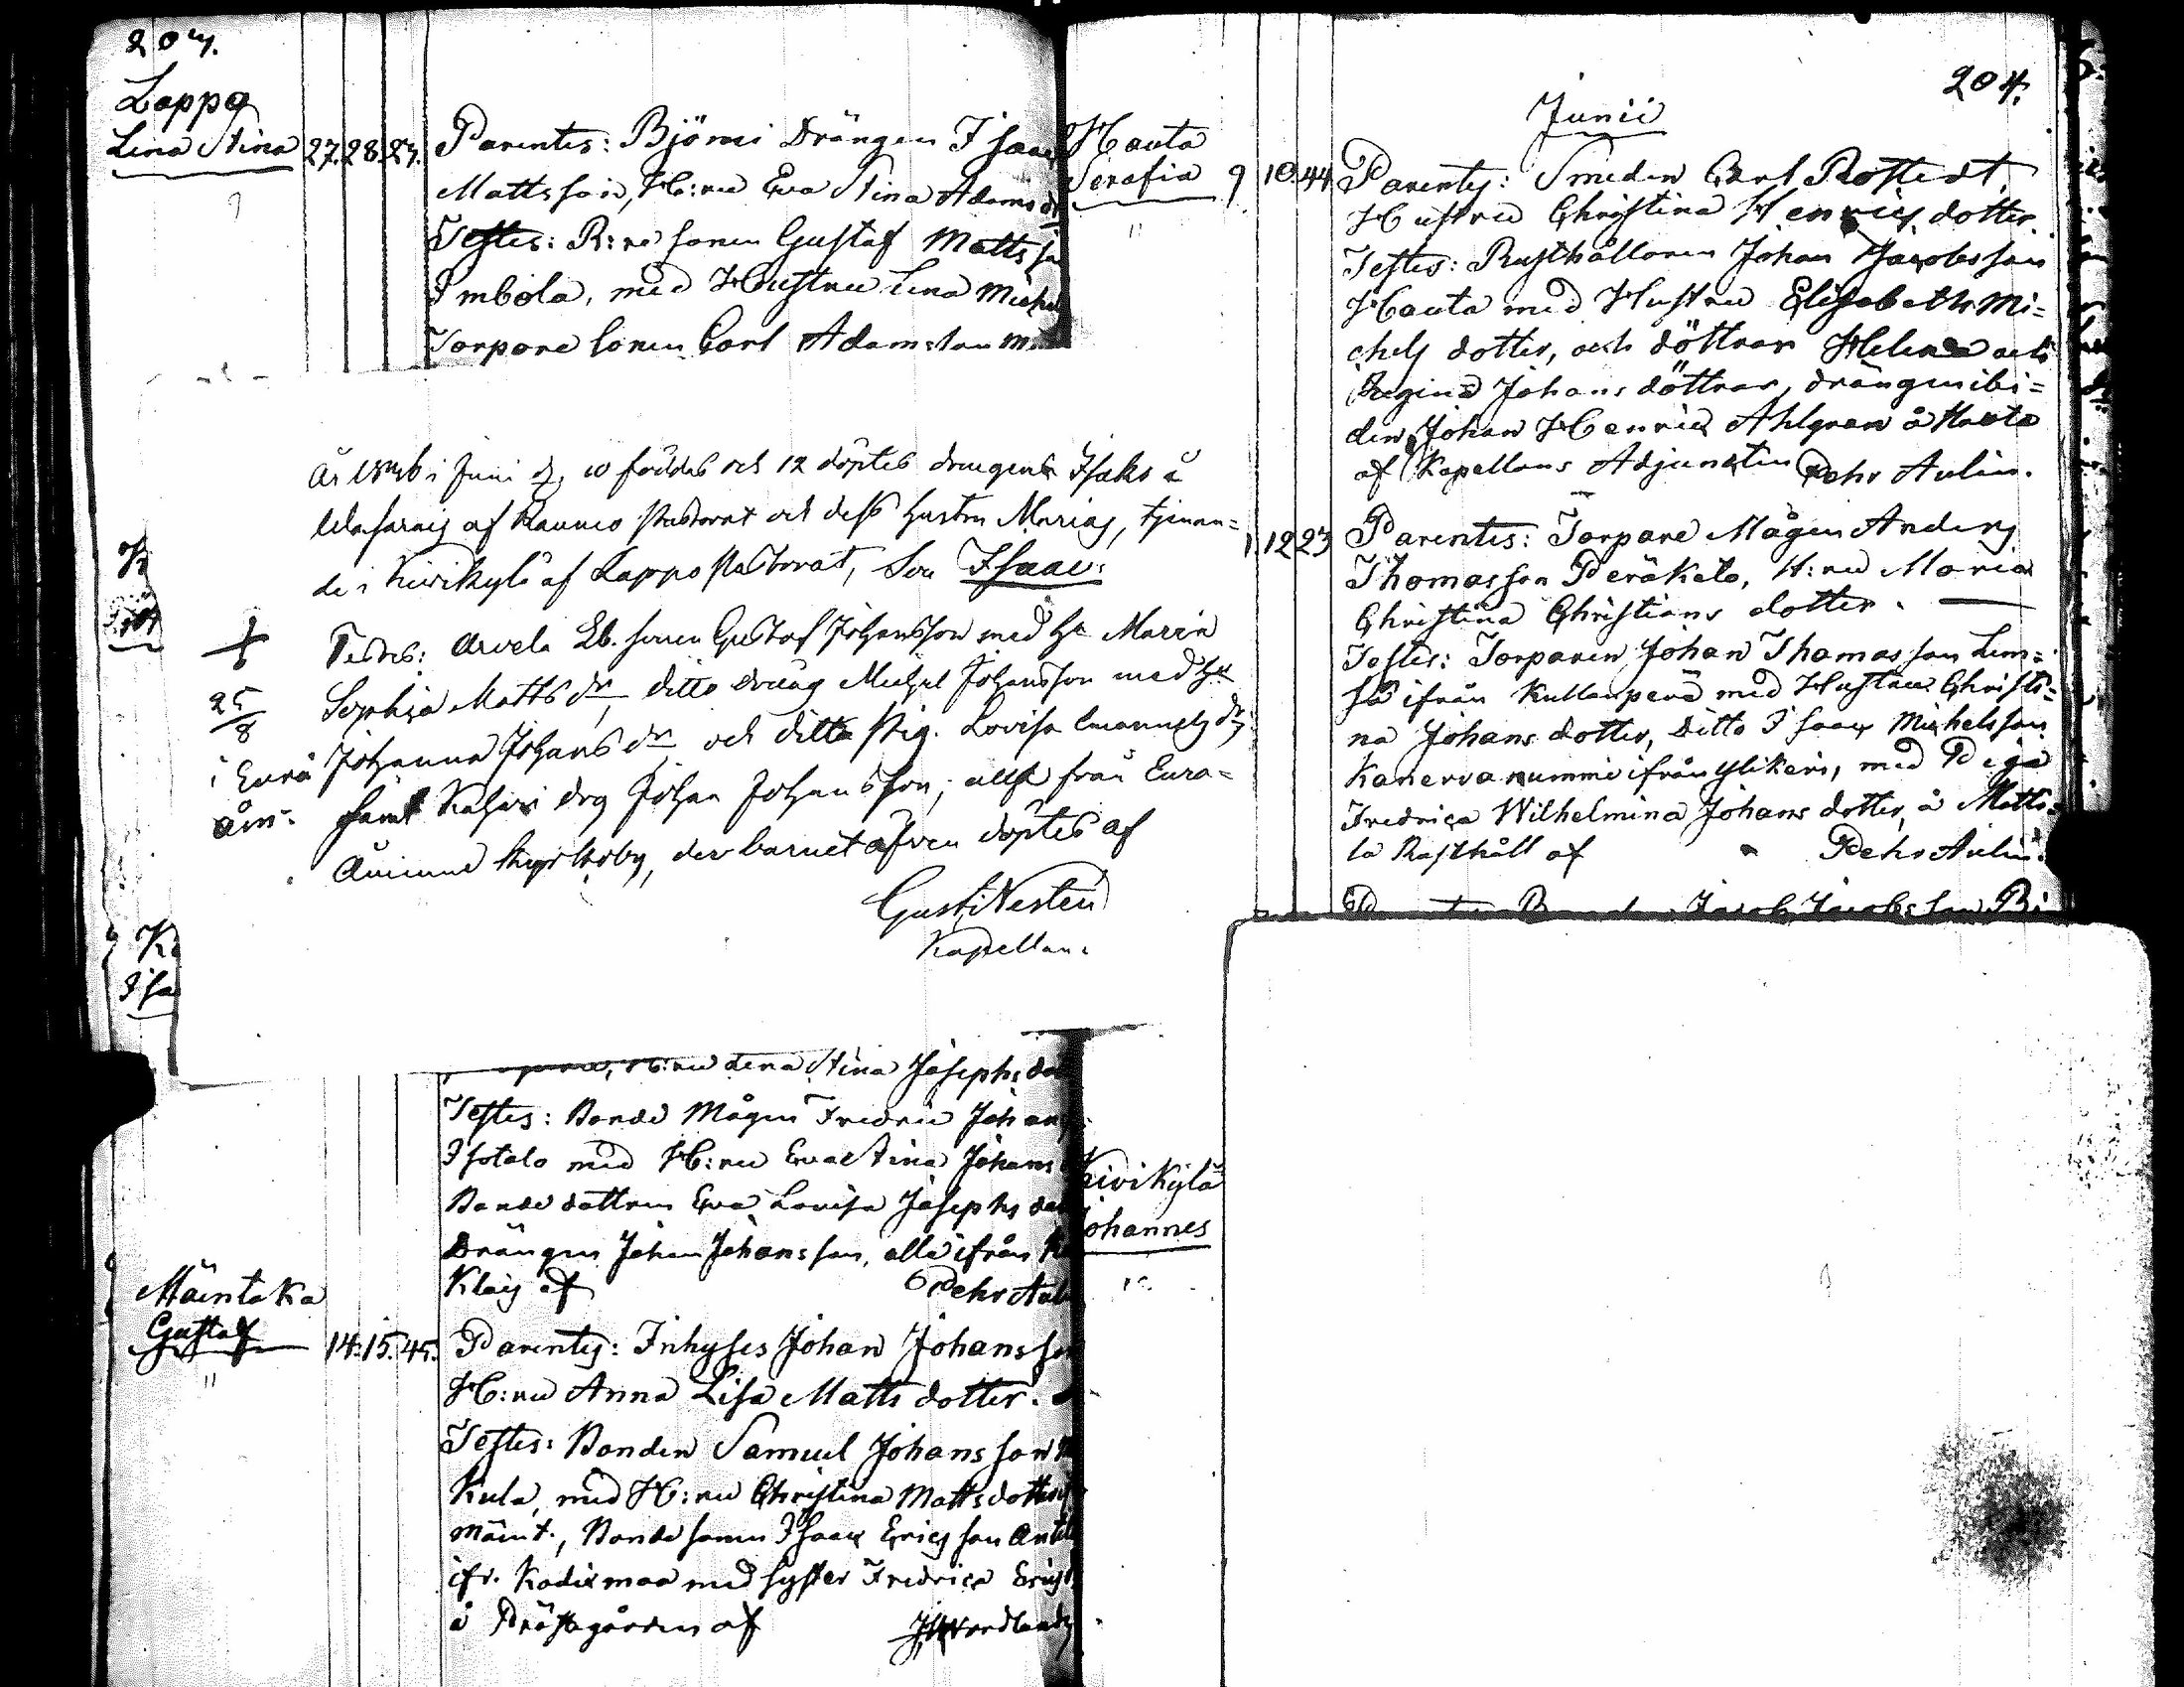 204.
Lappo
Lena Stina 27. 28. 27. Parentes: Björni Drängen Isaac
Mattsson, H:ru Eva Stina Adams d
Testes: R:re sonen Gustaf Matts so
Imbola, med Hustru Lena Michel
Torpare sonen Carl Adamsson
År i Juni d. 10 föddes och 12 döptes drängens Isaks å
af Raumo Pastorat och dess hustru Marias, tjenan=
de i Kivikylä af Lappo Pastorat, Son Isaac.
Testes: Arvela Lb. sonen Gustaf Johansson med H. Maria
Sophia Matts dr, ditto dräng Michel Johansson med H.
Johanna Johans dr och ditto pig. Lovisa Emanuels dr,
samt drg Johan Johansson; alla från Eura=
Åminne by, der barnet äfven döptes af
Gust. Nestén
Kapellan.
25
8
i Eura
åm:
K
K
Isa
H:ru Lena Stina Josephs do
Testes: Bonde Mågen Fredric Johans
Isotalo med H:ru Eva Stina Johans
Bonde dottren Eva Lovisa Josephs do
Drängen Johan Johansson, alla ifrån
af Pehr Aul
Mäntaka
Gustaf 14. 15. 45. Parentes: Inhyses Johan Johansson
H:ru Anna Lisa Matts dotter.
Testes: Bonden Samuel Johansson
Kula, med H:ru Christina Matts dotter
Mäint., Bonde sonen Isaac Ericsson Antti
ifr. Kodixmaa med syster Fredrica Erics
å Prästgården af Nordlund
204.
Junii
Hauta
Serafia 9 10. 44 Parentes: Smeden Carl Rostedt,
Hustru Christina Henrics dotter.
Testes: Rusthållaren Johan Jacobsson
Hauta med Hustru Elisabeth Mi=
chels dotter, och döttrar Helena och
Regina Johans döttrar, drängen ibi=
dem Johan Henric Ahlgren å Hauta
af Kapellans Adjuncten Pehr Aulin.
1. 12 23 Parentes: Torpare Mågen Anders
Thomasson Peräkelo, H:ru Maria
Christina Christians dotter.
Testes: Torparen Johan Thomasson Lem=
sä ifrån Kullanperä med Hustru Christi=
na Johans dotter, Ditto Isaac Michelsson
Kanervanummi ifrån Ylikieri, med Piga
Fredrica Wilhelmina Johans dotter, å Matti=
la Rusthåll af Pehr Aulin.
Jacob Jacobsson
Kivikylä
Johannes